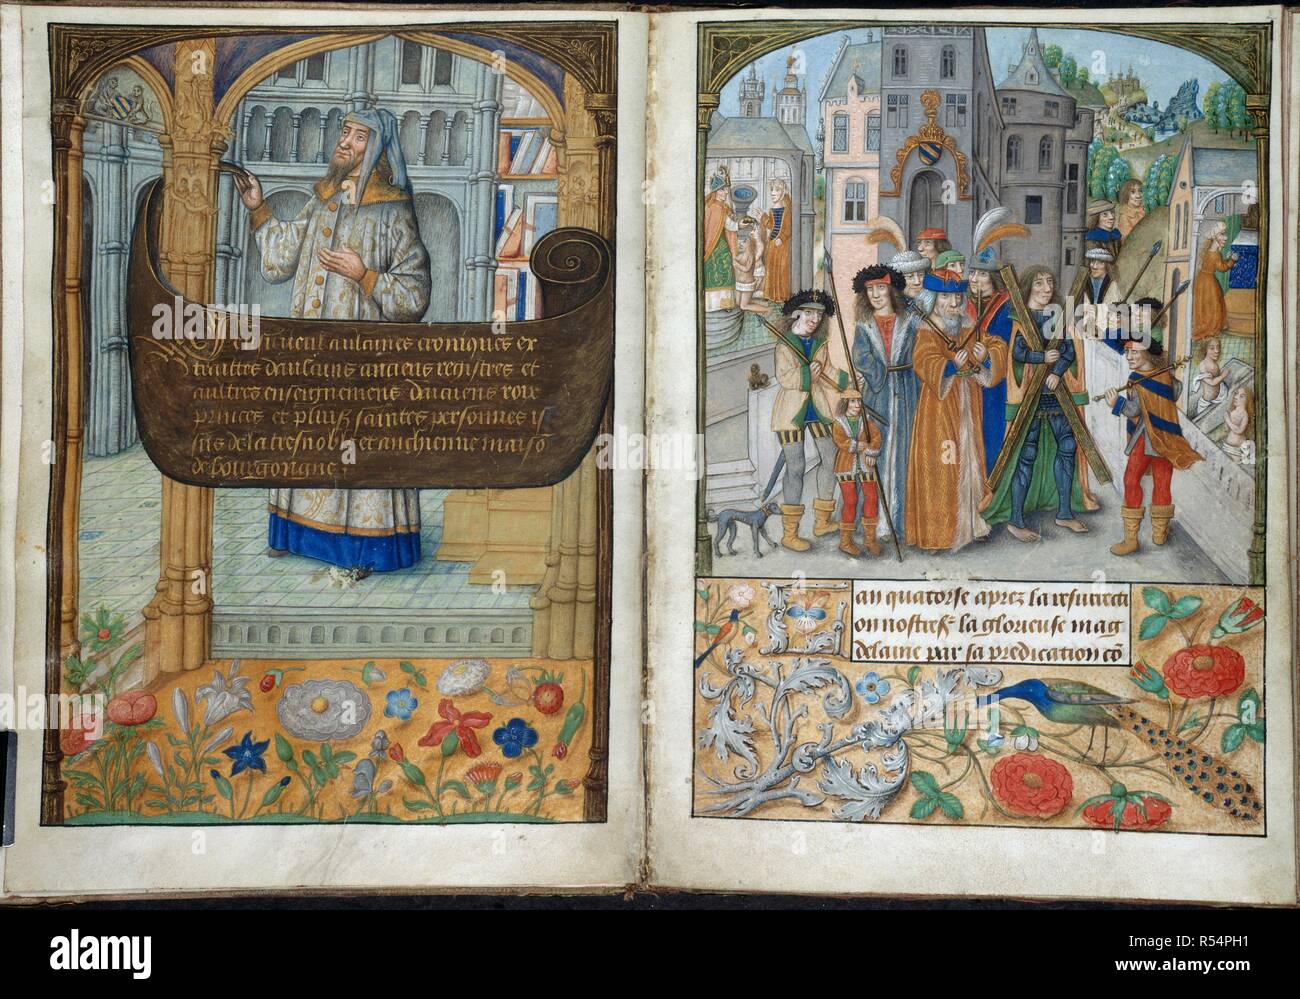 recueil daulcunes croniques ex
traittes daulcuns anciens registres et
aultres enseignemens danciens roix
princes et pluiss saintes personnes is
sus de la tres noble et anchienne maisō
de bourgoingne.
an quatorse aprez la resurrecti
on nostre s. la glorieuse mag
delaine par sa predication cō
a
alamy stock photo
alamy
Image ID: R54PH1
www.alamy.com